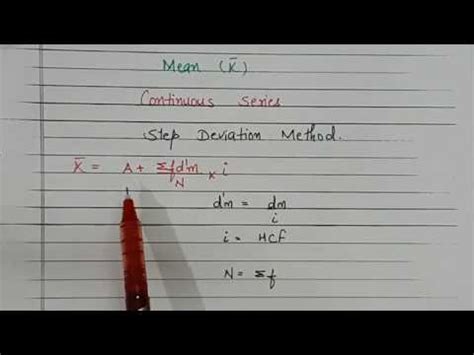 Mean (X̄)
Continuous Series
Step Deviation Method.
X̄ = A + Σfd'm/N × i
d'm = dm/i
i = HCF
N = Σf